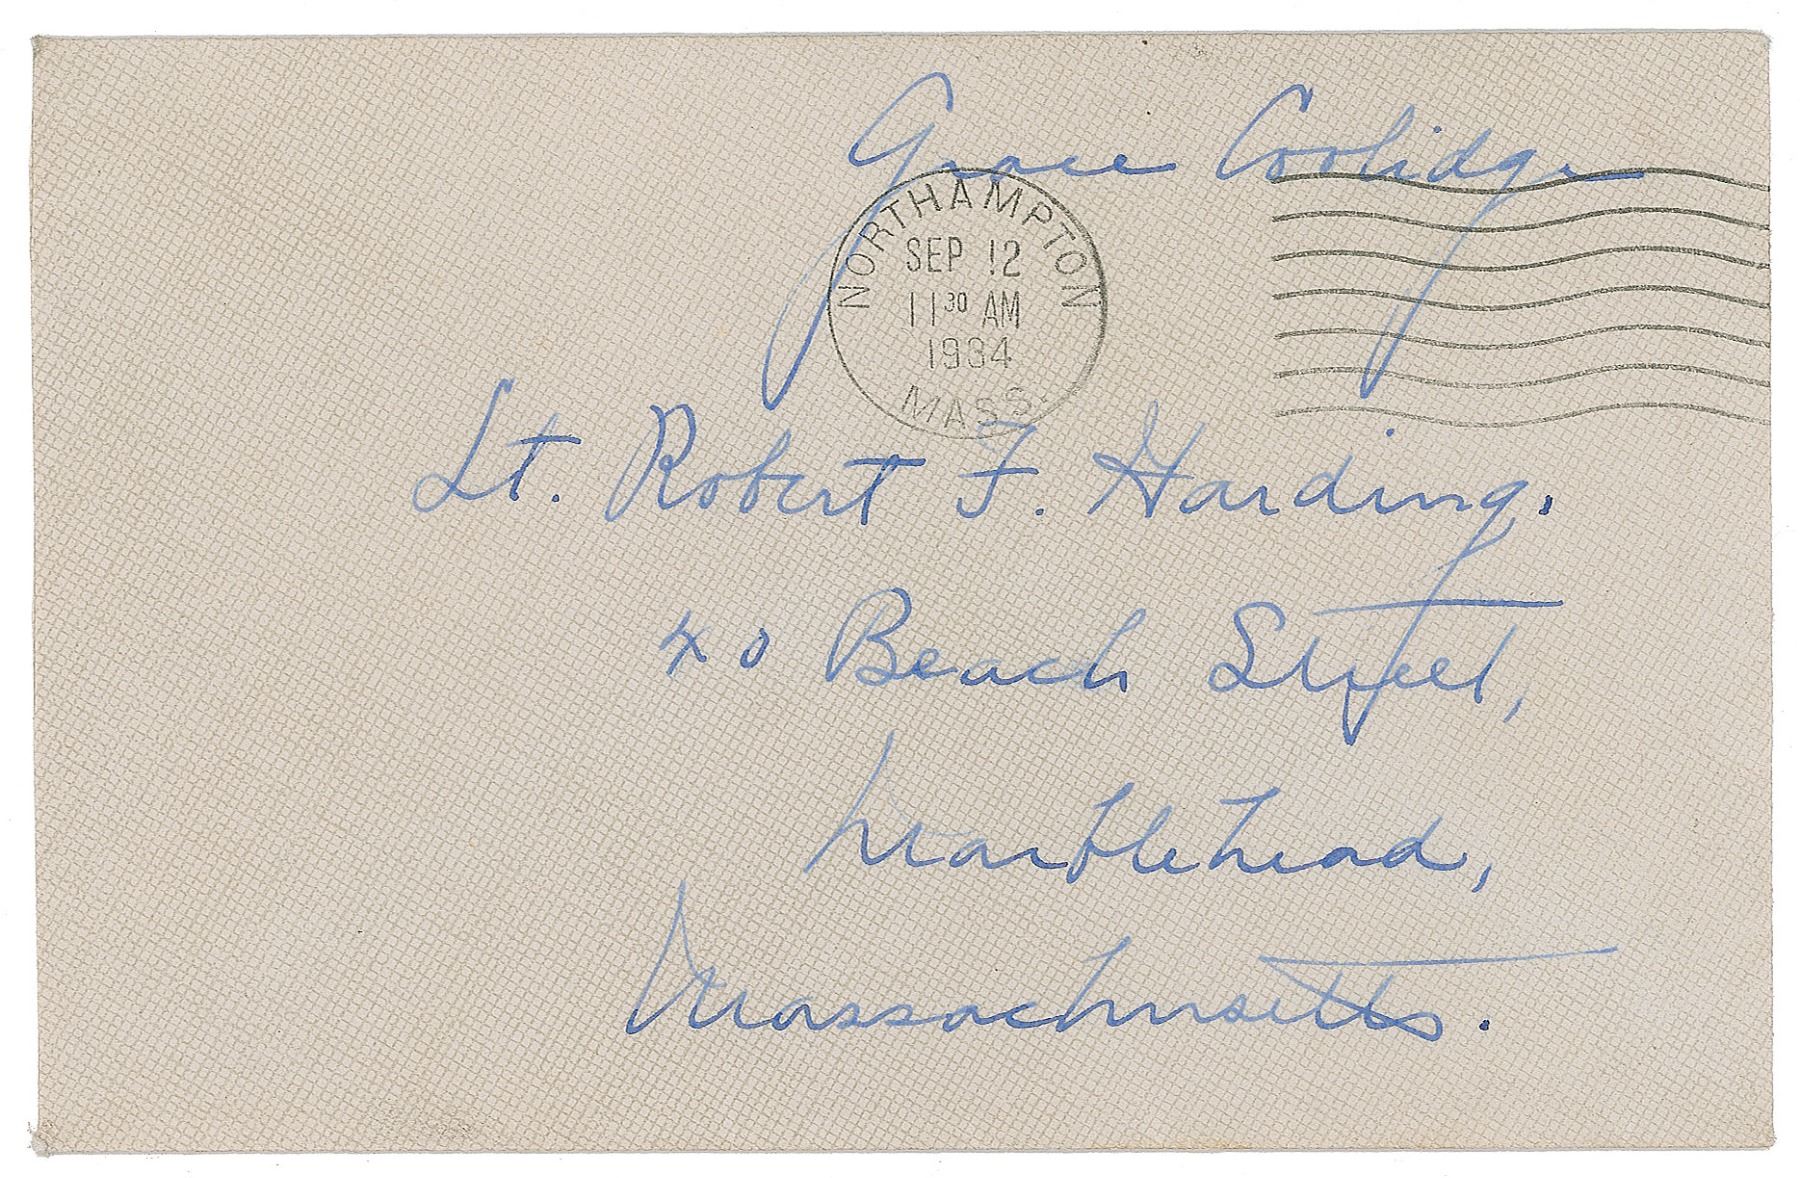 Grace Coolidge
NORTHAMPTON
SEP 12
11 30 AM
1934
MASS.
Lt. Robert F. Harding.
40 Beach Street,
Marblehead,
Massachusetts.